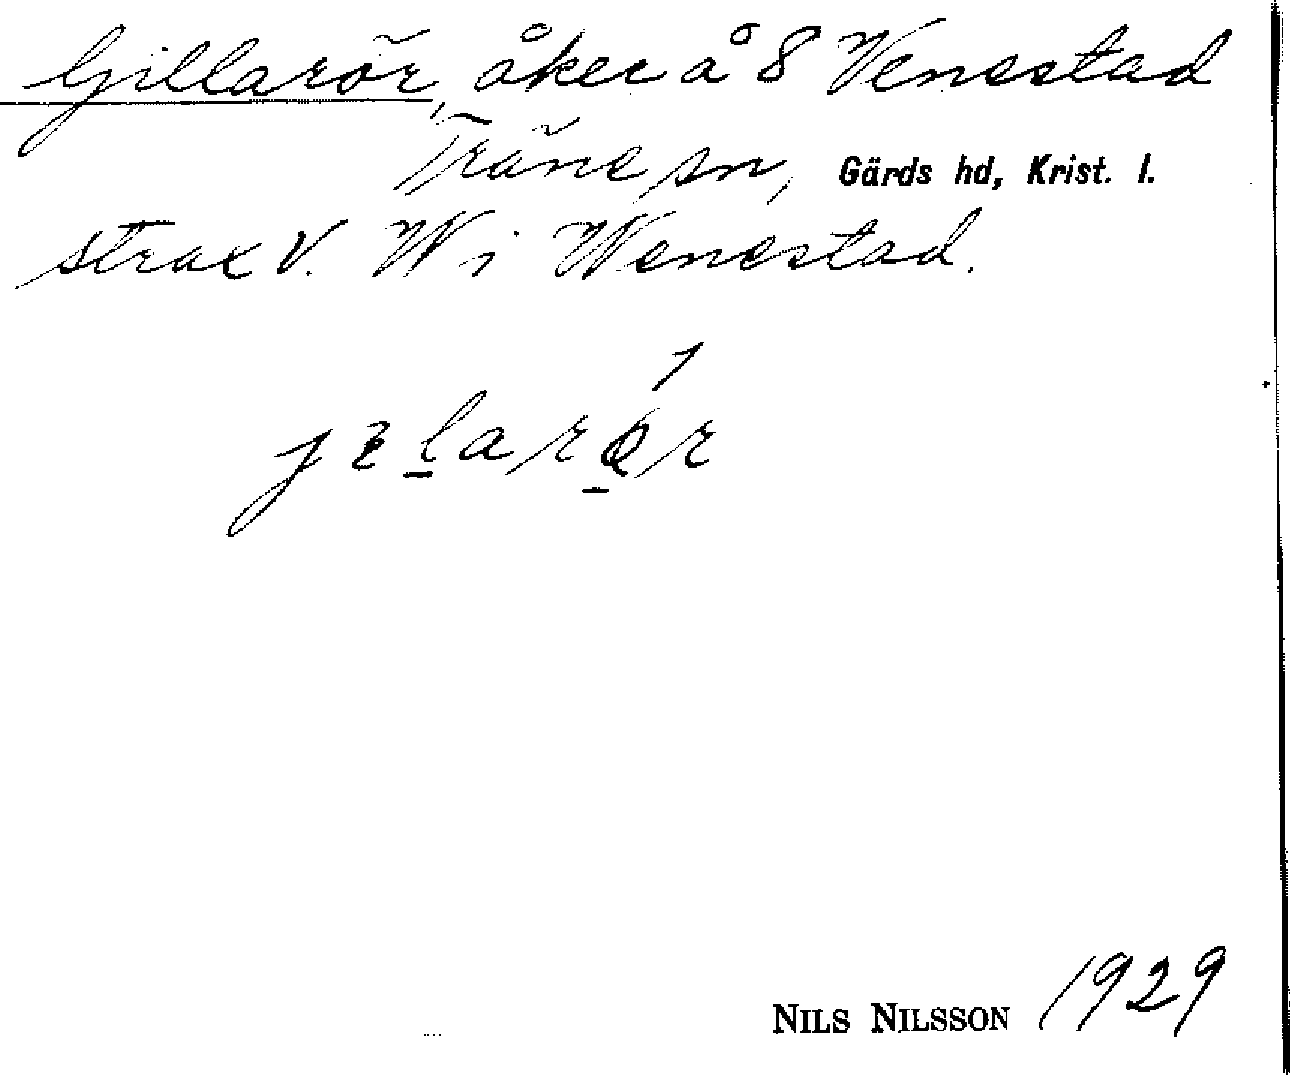 Gillarör, åker å 8 Venestad
Träne sn, Gärds hd, Krist. l.
strax V. W i Wenestad.
NILS NILSSON 1929